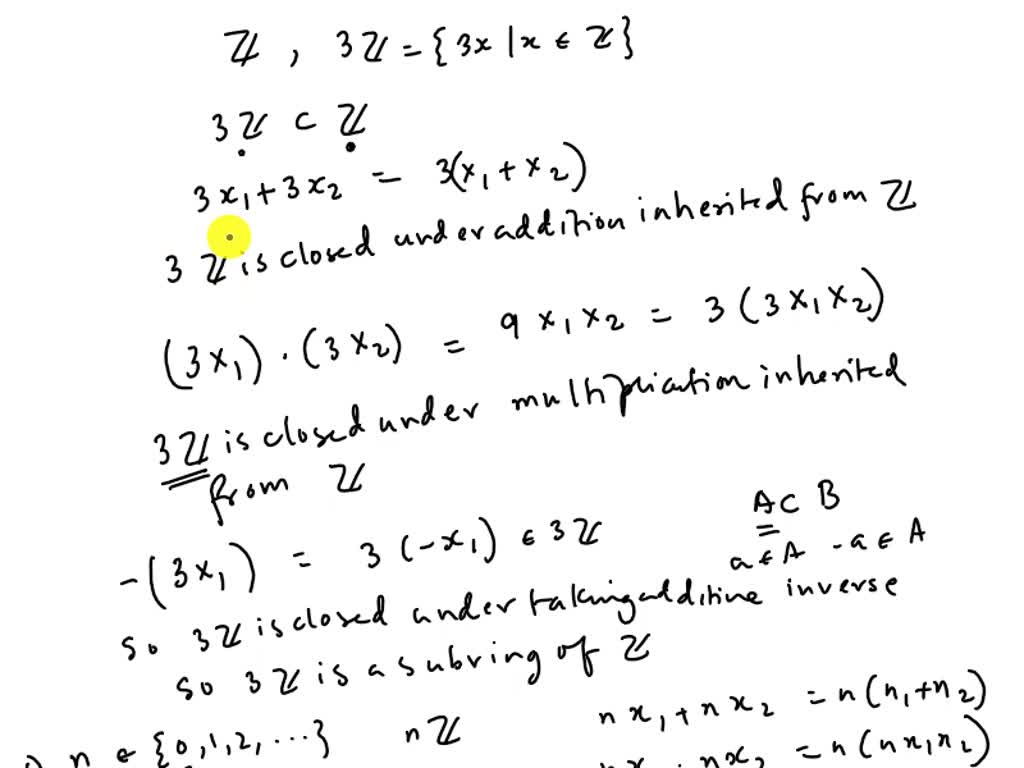 ℤ , 3ℤ = {3x | x ∈ ℤ}
3ℤ ⊂ ℤ
3x₁ + 3x₂ = 3(x₁ + x₂)
3ℤ is closed under addition inherited from ℤ
(3x₁) · (3x₂) = 9x₁x₂ = 3(3x₁x₂)
3ℤ is closed under multiplication inherited
from ℤ
A ⊂ B
-(3x₁) = 3(-x₁) ∈ 3ℤ
a ∈ A -a ∈ A
so 3ℤ is closed under taking additive inverse
so 3ℤ is a subring of ℤ
nx₁ + nx₂ = n(n₁+n₂)
) n ∈ {0,1,2,...} nℤ
nx . nx₂ = n(nx₁x₂)